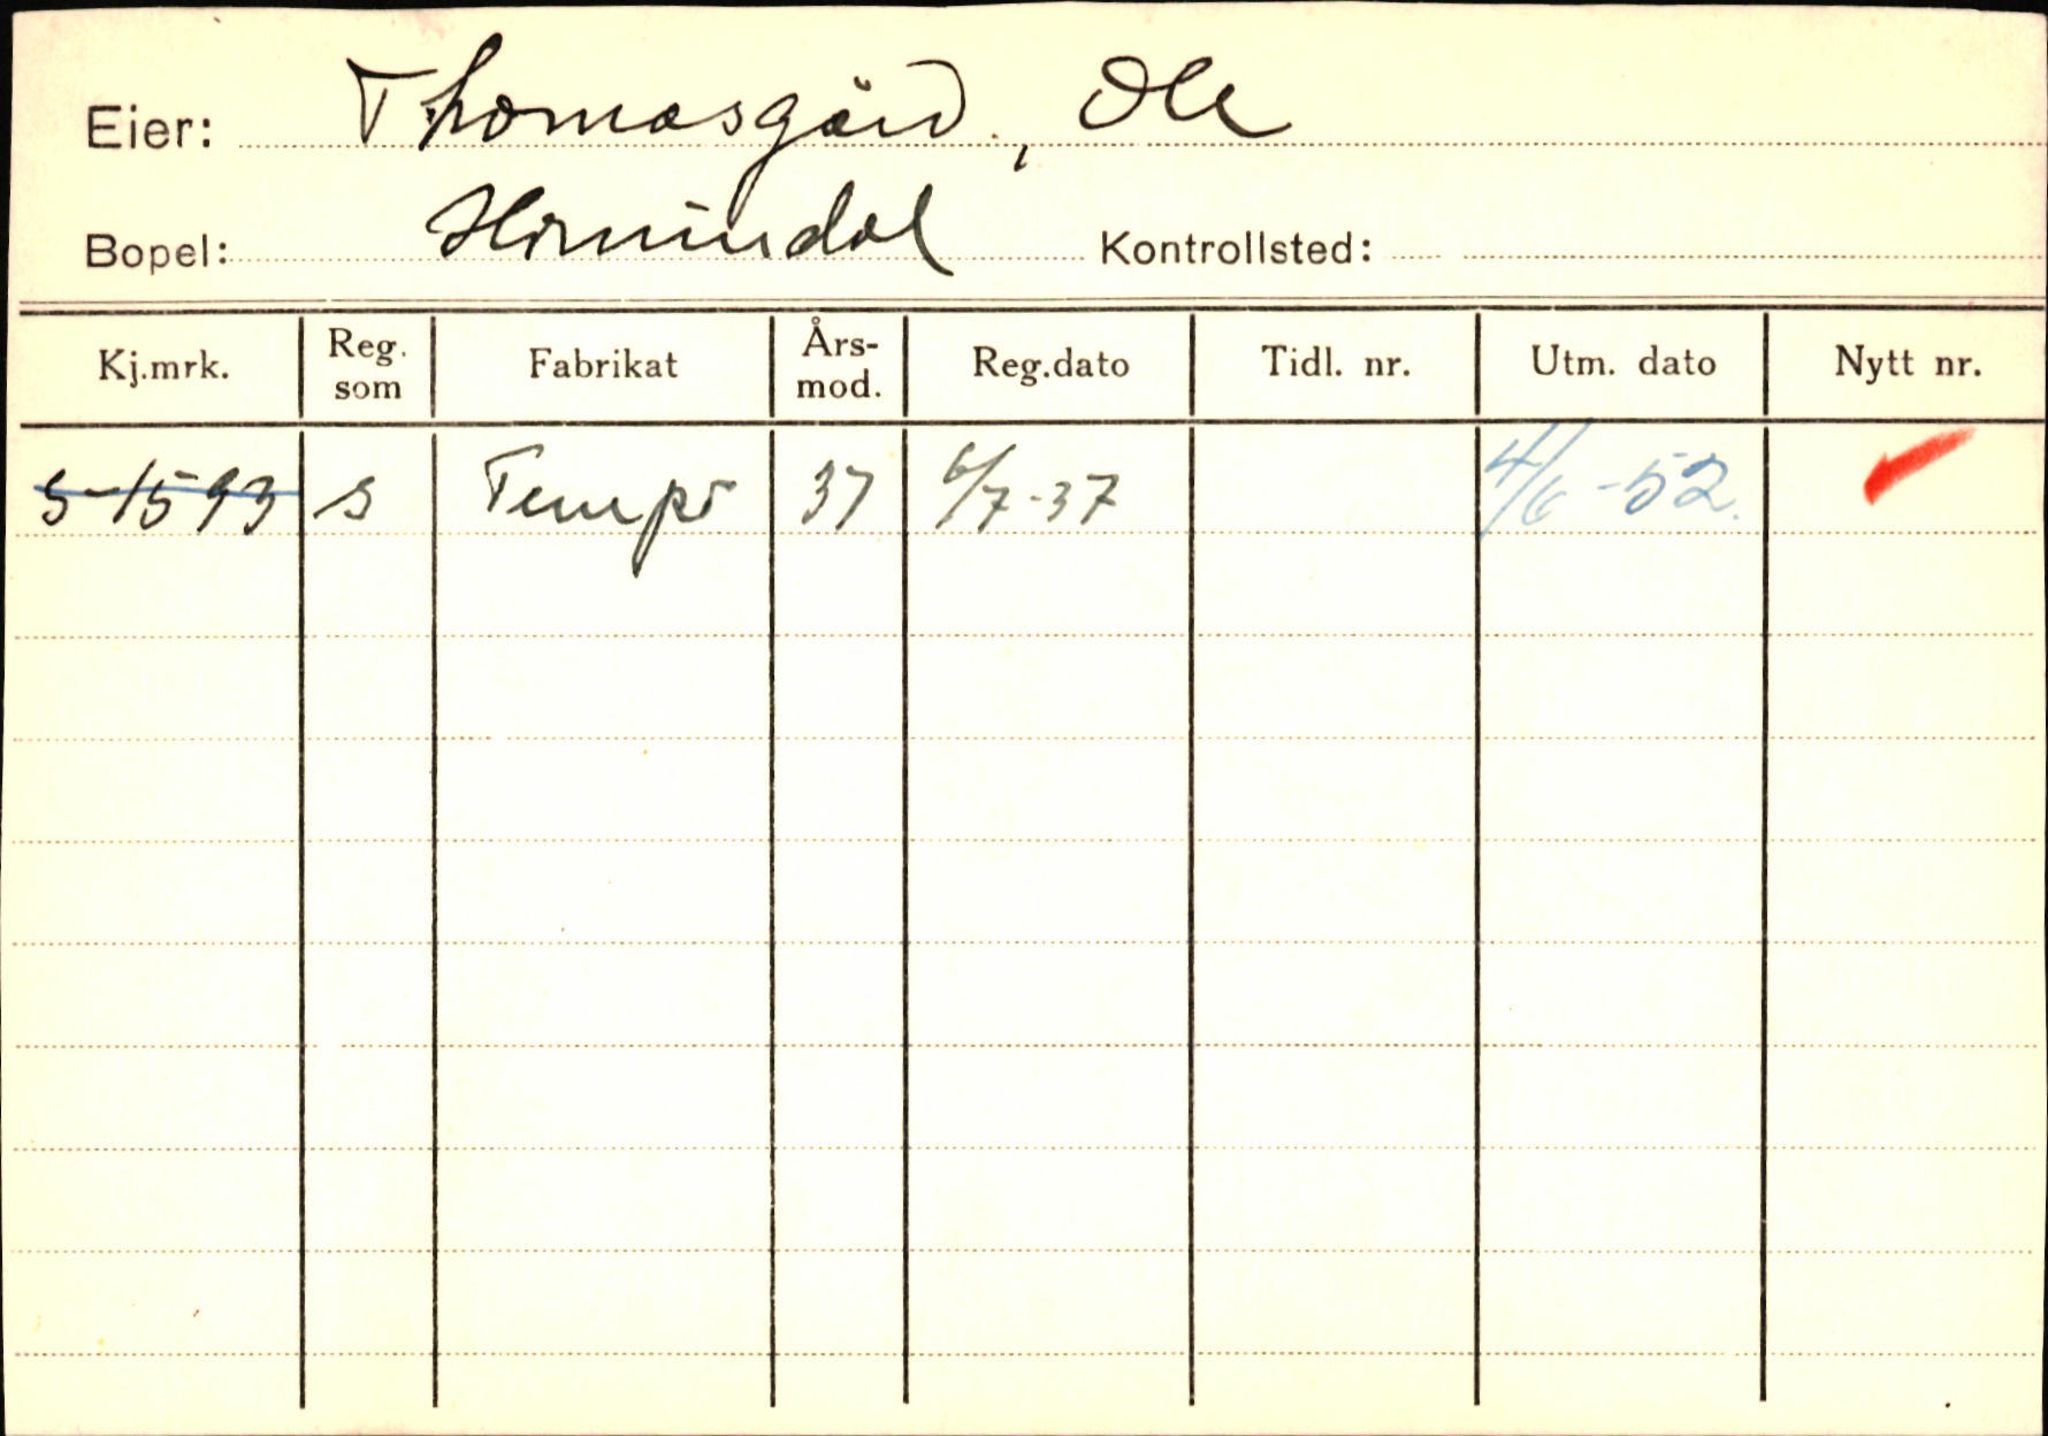 Eier: Thomasgård, Ole
Bopel: Hornindal Kontrollsted:
Kj.mrk. Reg. som Fabrikat Års- mod. Reg.dato Tidl. nr. Utm. dato Nytt nr.
S-1593 s Tempo 37 6/7-37 4/6-52.